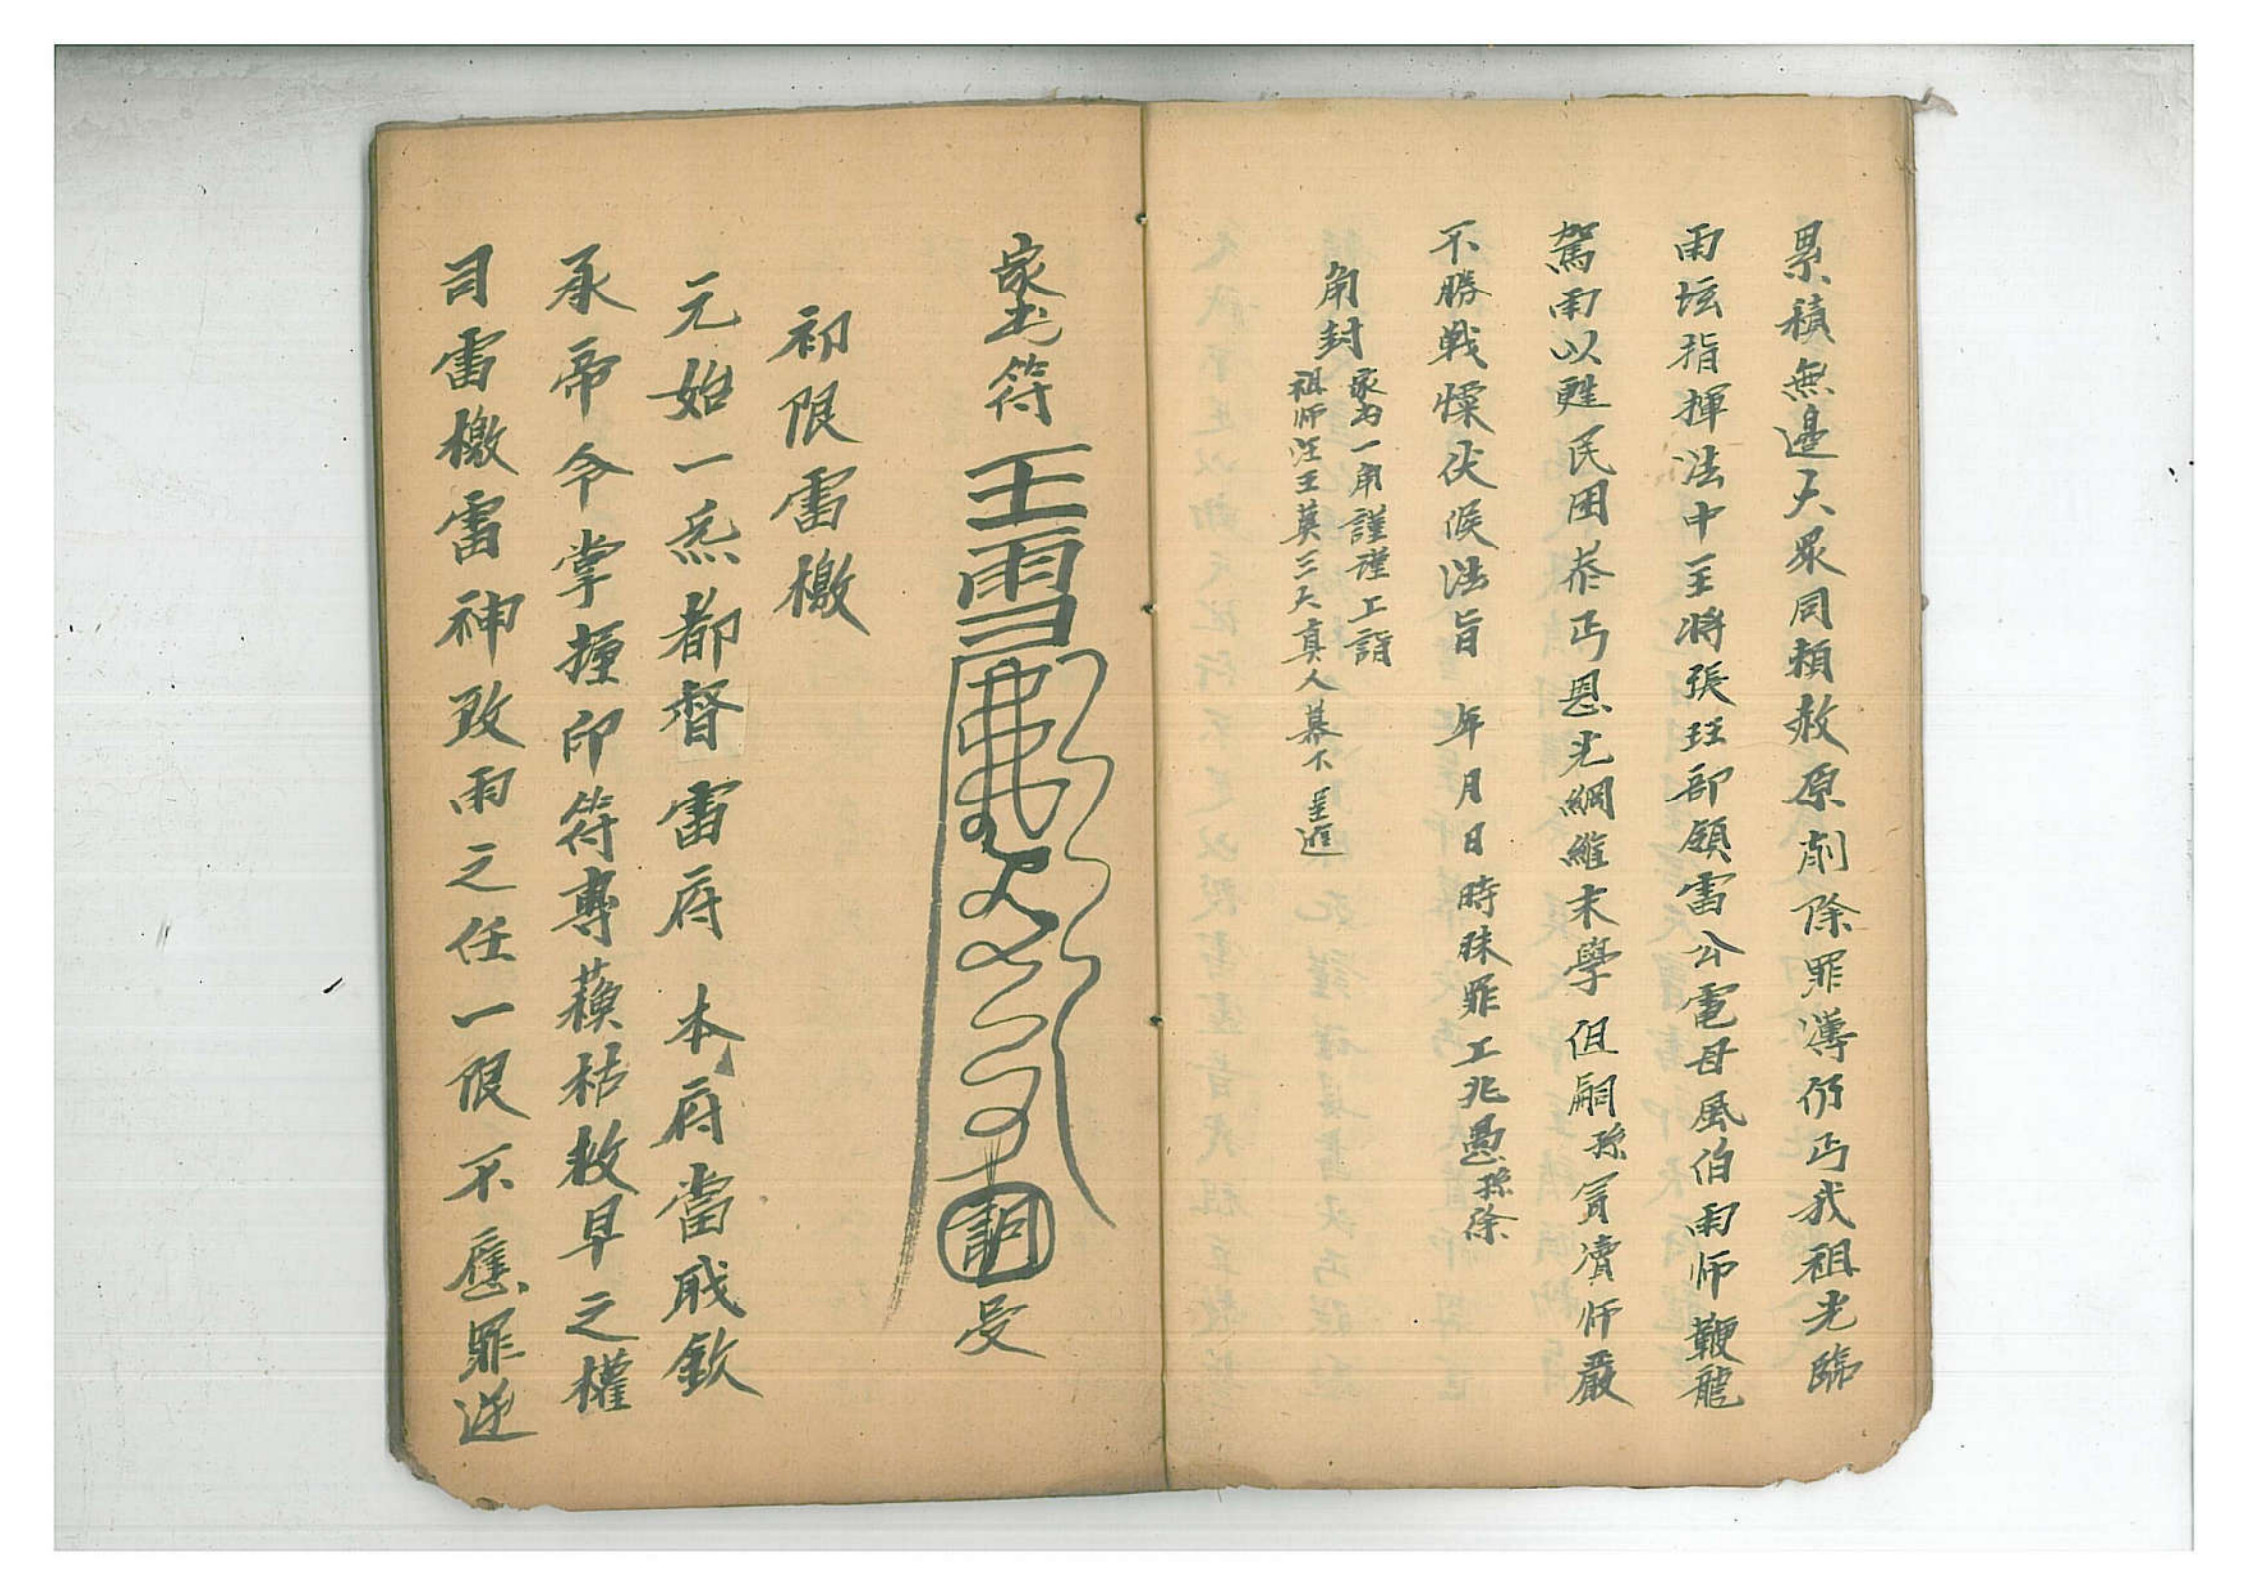 累積無邊天眾同頼赦原削除罪潭仍丐我祖光臨
雨坛指揮法中主将張珏部領雷公電母風伯雨師鞭龍
駕雨以甦民困恭丐恩光綱維末學 但嗣孫冥瀆師嚴
不勝戦慄伏候法旨 年 月 日 時 殊罪工兆愚孫徐
角封
家内一角謹謹工詣
祖師汪王莫三天真人慕下 呈進
家書符
初限雷檄
元始一炁都督雷府 本府當職欽
承帝令掌握印符專蘓枯救旱之權
司雷檄雷神致雨之任一限不應罪逆